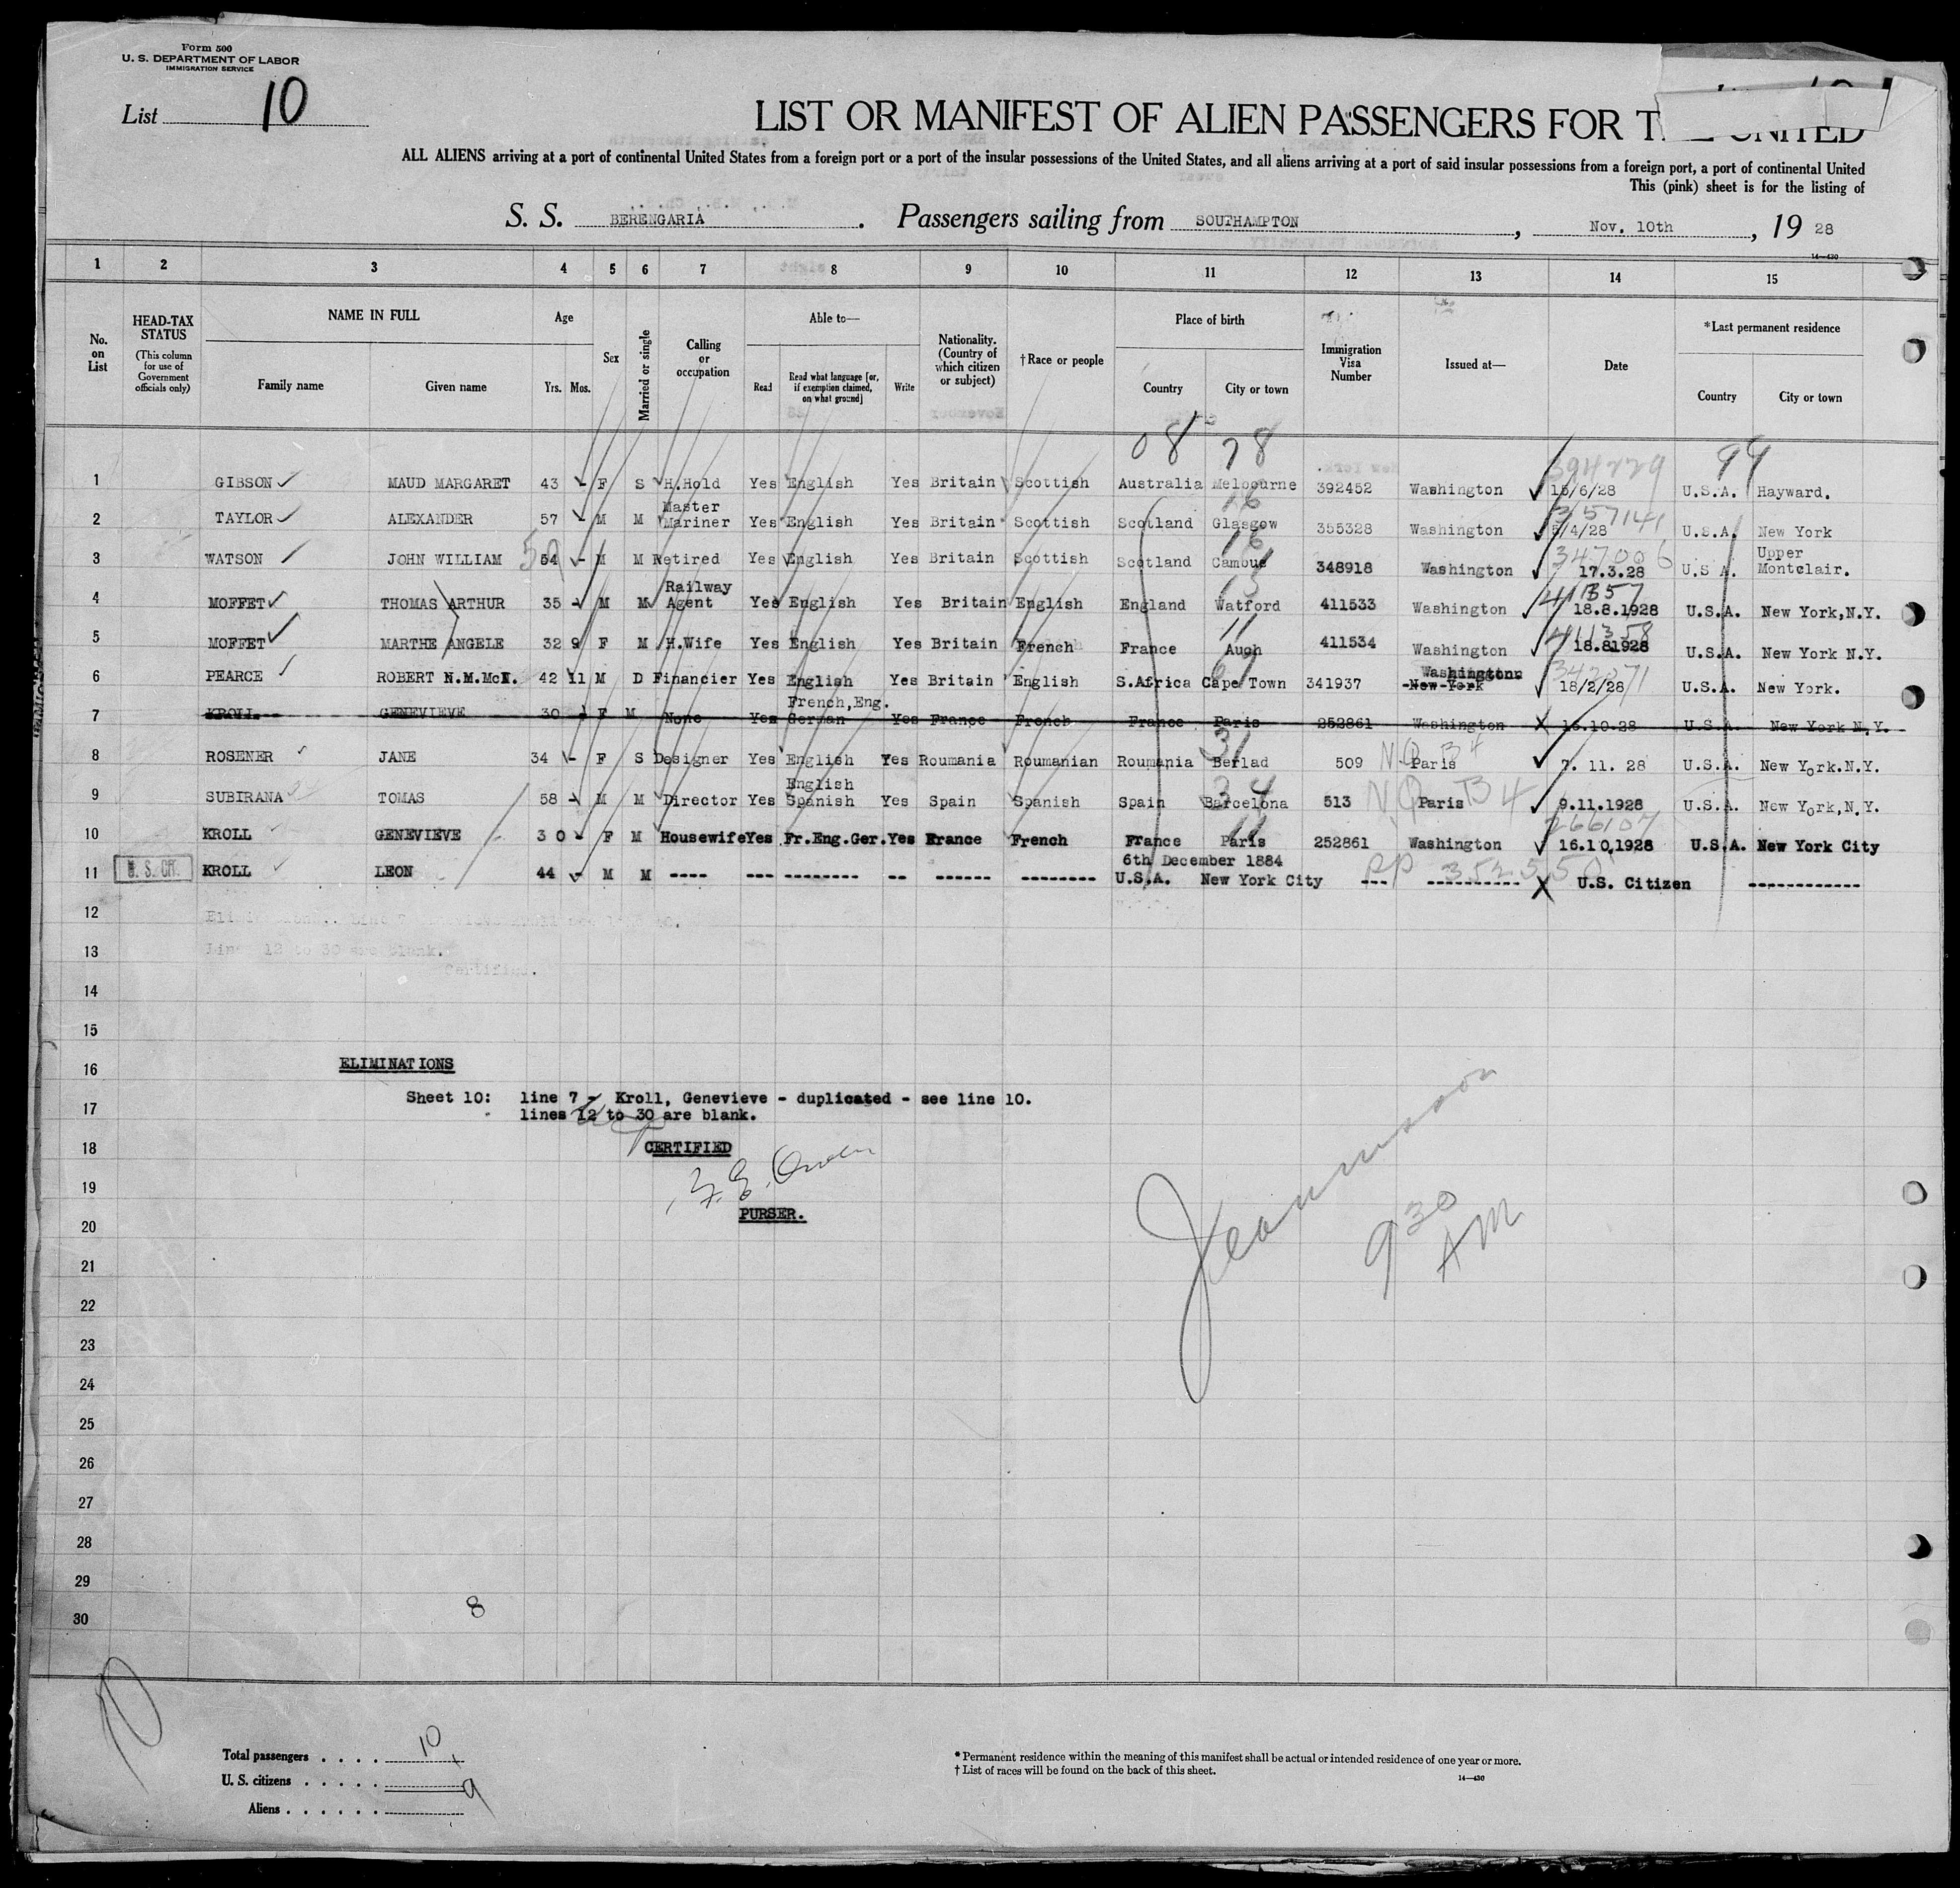 Form 500
U. S. DEPARTMENT OF LABOR
IMMIGRATION SERVICE
List 10
LIST OR MANIFEST OF ALIEN PASSENGERS FOR T UNITED
ALL ALIENS arriving at a port of continental United States from a foreign port or a port of the insular possessions of the United States, and all aliens arriving at a port of said insular possessions from a foreign port, a port of continental United
This (pink) sheet is for the listing of
S. S. BERENGARIA. Passengers sailing from SOUTHAMPTON, Nov. 10th, 19 28
14—430
1 2 3 4 5 6 7 8 9 10 11 12 13 14 15
No. on List
HEAD-TAX STATUS
(This column for use of Government officials only)
NAME IN FULL
Family name Given name
Age
Yrs. Mos.
Sex
Married or single
Calling or occupation
Able to—
Read
Read what language [or, if exemption claimed, on what ground]
Write
Nationality. (Country of which citizen or subject)
†Race or people
Place of birth
Country City or town
Immigration Visa Number
Issued at—
Date
*Last permanent residence
Country City or town
08 78 99
394229
1 GIBSON MAUD MARGARET 43 - F S H.Hold Yes English Yes Britain Scottish Australia Melbourne 392452 Washington 15/6/28 U.S.A. Hayward.
2 TAYLOR ALEXANDER 57 - M M Master Mariner Yes English Yes Britain Scottish Scotland Glasgow 355328 Washington 5/4/28 U.S.A. New York
347006
3 WATSON JOHN WILLIAM 54 - M M Retired Yes English Yes Britain Scottish Scotland 348918 Washington 17.3.28 U.S.A. Upper Montclair.
4 MOFFET THOMAS ARTHUR 35 - M M Railway Agent Yes English Yes Britain English England Watford 411533 Washington 18.8.1928 U.S.A. New York,N.Y.
411358
5 MOFFET MARTHE ANGELE 32 9 F M H.Wife Yes English Yes Britain French France Auch 411534 Washington 18.81928 U.S.A. New York N.Y.
6 PEARCE ROBERT N.M.McI. 42 11 M D Financier Yes English Yes Britain English S.Africa Cape Town 341937 New York Washington 18/2/28 U.S.A. New York.
7 KROLL GENEVIEVE 30 - F M None Yes French,Eng. German Yes France French France Paris 252861 Washington 16.10.28 U.S.A. New York N.Y.
8 ROSENER JANE 34 - F S Designer Yes English Yes Roumania Roumanian Roumania Berlad 509 Paris 7. 11. 28 U.S.A. New York.N.Y.
9 SUBIRANA TOMAS 58 - M M Director Yes English Spanish Yes Spain Spanish Spain Barcelona 513 Paris 9.11.1928 U.S.A. New York,N.Y.
266107
10 KROLL GENEVIEVE 30 - F M Housewife Yes Fr.Eng.Ger. Yes France French France Paris 252861 Washington 16.10.1928 U.S.A. New York City
6th December 1884
11 U. S. CIT. KROLL LEON 44 - M M ---- --- -------- -- ------ -------- U.S.A. New York City --- ---------- U.S. Citizen ------------
12
13
14
15
16
ELIMINATIONS
17
Sheet 10: line 7 - Kroll, Genevieve - duplicated - see line 10.
lines 12 to 30 are blank.
18
CERTIFIED
19
20
PURSER.
9 30 AM
21
22
23
24
25
26
27
28
29
30
8
10
Total passengers . . . . 10
U. S. citizens . . . . .
9
Aliens . . . . . .
* Permanent residence within the meaning of this manifest shall be actual or intended residence of one year or more.
† List of races will be found on the back of this sheet.
14—430